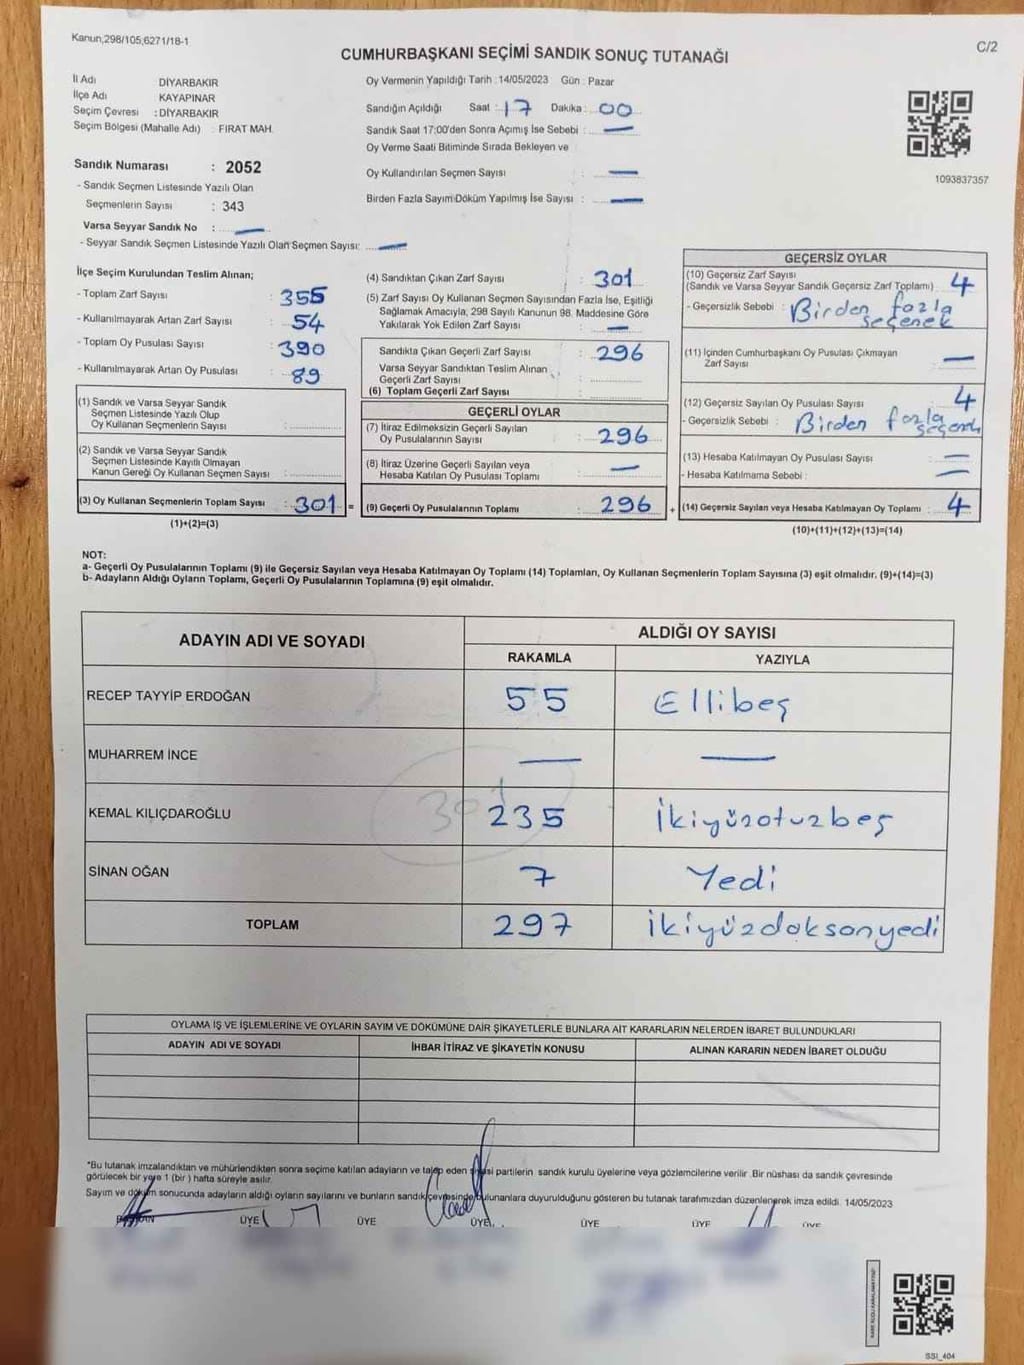 Kanun;298/105;6271/18-1
C/2
CUMHURBAŞKANI SEÇİMİ SANDIK SONUÇ TUTANAĞI
İl Adı DİYARBAKIR
İlçe Adı KAYAPINAR
Seçim Çevresi : DİYARBAKIR
Seçim Bölgesi (Mahalle Adı) : FIRAT MAH.
Oy Vermenin Yapıldığı Tarih : 14/05/2023 Gün : Pazar
Sandığın Açıldığı Saat : 17 Dakika : 00
Sandık Saat 17:00'den Sonra Açımış İse Sebebi : —
Oy Verme Saati Bitiminde Sırada Bekleyen ve
Oy Kullandırılan Seçmen Sayısı : —
Birden Fazla Sayım Döküm Yapılmış İse Sayısı : —
1093837357
Sandık Numarası : 2052
- Sandık Seçmen Listesinde Yazılı Olan
Seçmenlerin Sayısı : 343
Varsa Seyyar Sandık No : —
- Seyyar Sandık Seçmen Listesinde Yazılı Olan Seçmen Sayısı: —
İlçe Seçim Kurulundan Teslim Alınan;
- Toplam Zarf Sayısı : 355
- Kullanılmayarak Artan Zarf Sayısı : 54
- Toplam Oy Pusulası Sayısı : 390
- Kullanılmayarak Artan Oy Pusulası : 89
(1) Sandık ve Varsa Seyyar Sandık
Seçmen Listesinde Yazılı Olup
Oy Kullanan Seçmenlerin Sayısı :
(2) Sandık ve Varsa Seyyar Sandık
Seçmen Listesinde Kayıtlı Olmayan
Kanun Gereği Oy Kullanan Seçmen Sayısı :
(3) Oy Kullanan Seçmenlerin Toplam Sayısı : 301 =
(1)+(2)=(3)
(4) Sandıktan Çıkan Zarf Sayısı : 301
(5) Zarf Sayısı Oy Kullanan Seçmen Sayısından Fazla İse, Eşitliği
Sağlamak Amacıyla, 298 Sayılı Kanunun 98. Maddesine Göre
Yakılarak Yok Edilen Zarf Sayısı : —
Sandıkta Çıkan Geçerli Zarf Sayısı : 296
Varsa Seyyar Sandıktan Teslim Alınan
Geçerli Zarf Sayısı :
(6) Toplam Geçerli Zarf Sayısı :
GEÇERLİ OYLAR
(7) İtiraz Edilmeksizin Geçerli Sayılan
Oy Pusulalarının Sayısı : 296
(8) İtiraz Üzerine Geçerli Sayılan veya
Hesaba Katılan Oy Pusulası Toplamı : —
(9) Geçerli Oy Pusulalarının Toplamı : 296 +
GEÇERSİZ OYLAR
(10) Geçersiz Zarf Sayısı
(Sandık ve Varsa Seyyar Sandık Geçersiz Zarf Toplamı) : 4
- Geçersizlik Sebebi : Birden fazla
seçenek
(11) İçinden Cumhurbaşkanı Oy Pusulası Çıkmayan
Zarf Sayısı : —
(12) Geçersiz Sayılan Oy Pusulası Sayısı : 4
- Geçersizlik Sebebi : Birden fazla
(13) Hesaba Katılmayan Oy Pusulası Sayısı : —
- Hesaba Katılmama Sebebi : —
(14) Geçersiz Sayılan veya Hesaba Katılmayan Oy Toplamı : 4
(10)+(11)+(12)+(13)=(14)
NOT:
a- Geçerli Oy Pusulasının Toplamı (9) ile Geçersiz Sayılan veya Hesaba Katılmayan Oy Toplamı (14) Toplamları, Oy Kullanan Seçmenlerin Toplam Sayısına (3) eşit olmalıdır. (9)+(14)=(3)
b- Adayların Aldığı Oyların Toplamı, Geçerli Oy Pusulalarının Toplamına (9) eşit olmalıdır.
ADAYIN ADI VE SOYADI
ALDIĞI OY SAYISI
RAKAMLA YAZIYLA
RECEP TAYYİP ERDOĞAN 55 Ellibeş
MUHARREM İNCE — —
301
KEMAL KILIÇDAROĞLU 235 İkiyüzotuzbeş
SİNAN OĞAN 7 Yedi
TOPLAM 297 İkiyüzdoksanyedi
OYLAMA İŞ VE İŞLEMLERİNE VE OYLARIN SAYIM VE DÖKÜMÜNE DAİR ŞİKAYETLERLE BUNLARA AİT KARARLARIN NELERDEN İBARET BULUNDUKLARI
ADAYIN ADI VE SOYADI İHBAR İTİRAZ VE ŞİKAYETİN KONUSU ALINAN KARARIN NEDEN İBARET OLDUĞU
*Bu tutanak imzalandıktan ve mühürlendikten sonra seçime katılan adayların ve talep eden siyasi partilerin sandık kurulu üyelerine veya gözlemcilerine verilir .Bir nüshası da sandık çevresinde
görülecek bir yere 1 (bir ) hafta süreyle asılır.
Sayım ve döküm sonucunda adayların aldığı oyların sayılarını ve bunların sandık çevresinde bulunanlara duyurulduğunu gösteren bu tutanak tarafımızdan düzenlenerek imza edildi. 14/05/2023
ÜYE ÜYE ÜYE ÜYE ÜYE ÜYE
SSI_404